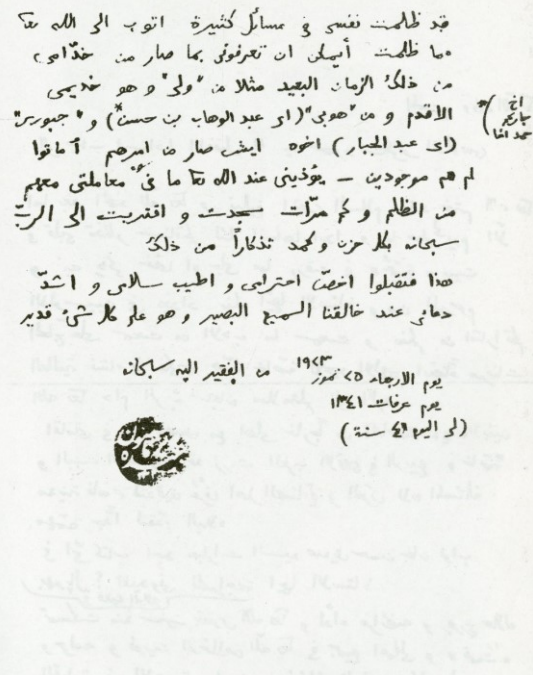 قد ظلمت نفسي في مسائل كثيرة اتوب الى الله تعا
ما ظلمت أيمكن ان تعرفوني بما صار من خدّامي
من ذلك الزمان البعيد مثلا من "ولي" و هو خديمي
الأقدم و من "هوبي" (اى عبد الوهاب بن حسن) و "جبوري"
(اى عبد الجبار) اخوه ايش صار من امرهم أماتوا
ام هم موجودين – يؤذيني عند الله تعا ما في معاملتي معهم
من الظلم و كم مرّات سجدت و اقتربت الى الربّ
سبحانه بكل حزن و لحمد تذكاراً من ذلك
هذا فتقبلوا اخصّ احترامي و اطيب سلامي و اشدّ
دعائي عند خالقنا السميع البصير و هو على كل شئ قدير
من الفقير اليه سبحانه
يوم الاربعاء ٢٥ تموز ١٩٢٣
يوم عرفات ١٣٤١
(لى اليوم ٤٩ سنة)